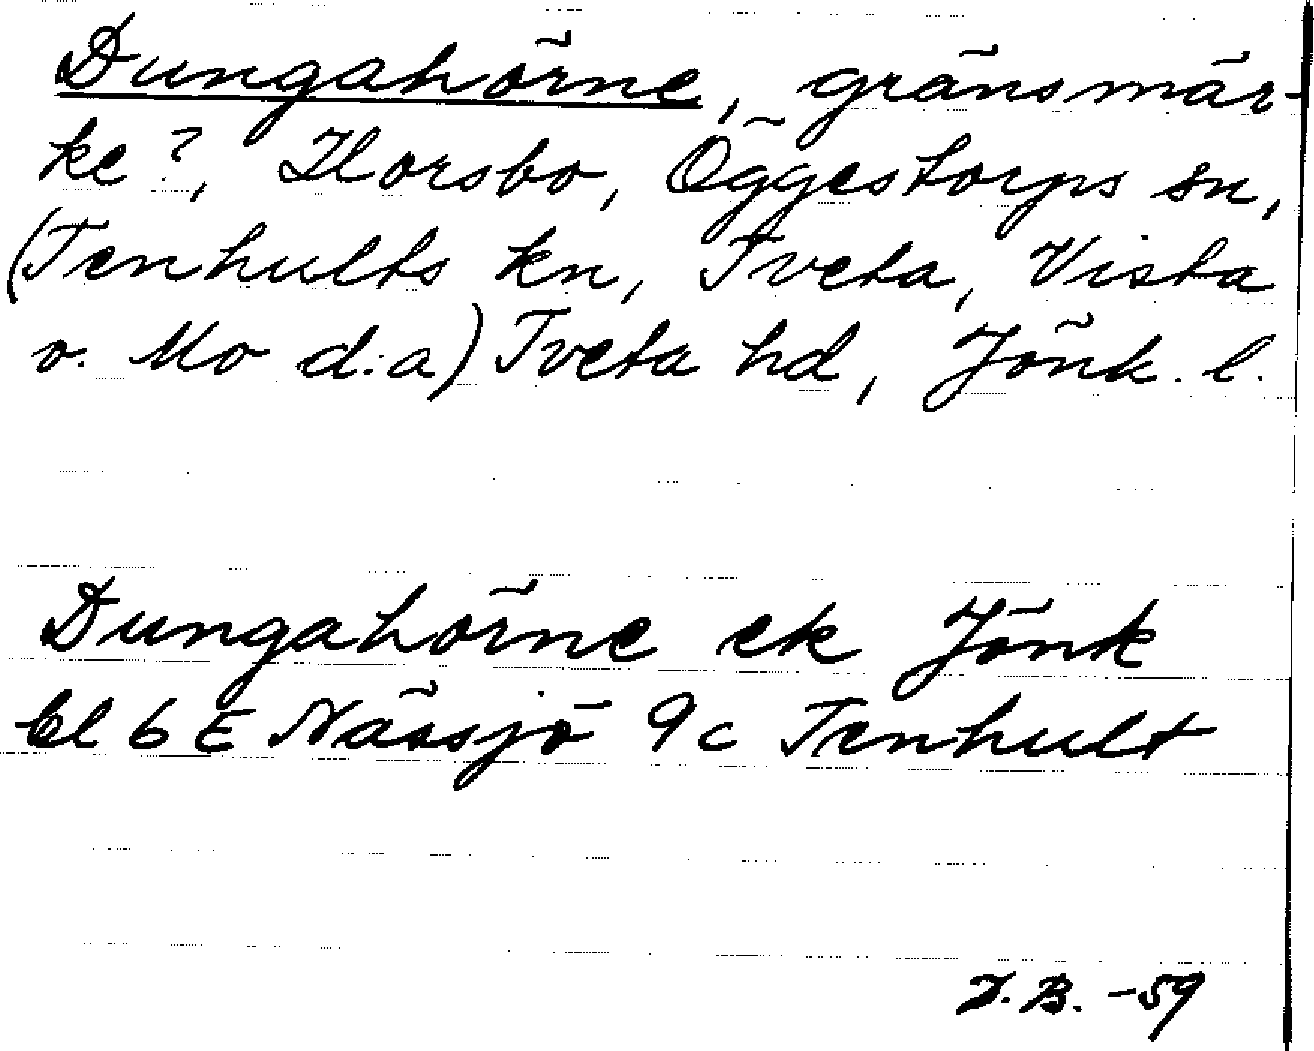 Dungahörne, gränsmär-
ke?, Horsbo, Öggestorps sn,
(Tenhults kn, Tveta, Vista
o. Mo d:a) Tveta hd, Jönk. l.
Dungahörne ek Jönk
bl 6E Nässjö 9c Tenhult
I.B. -59